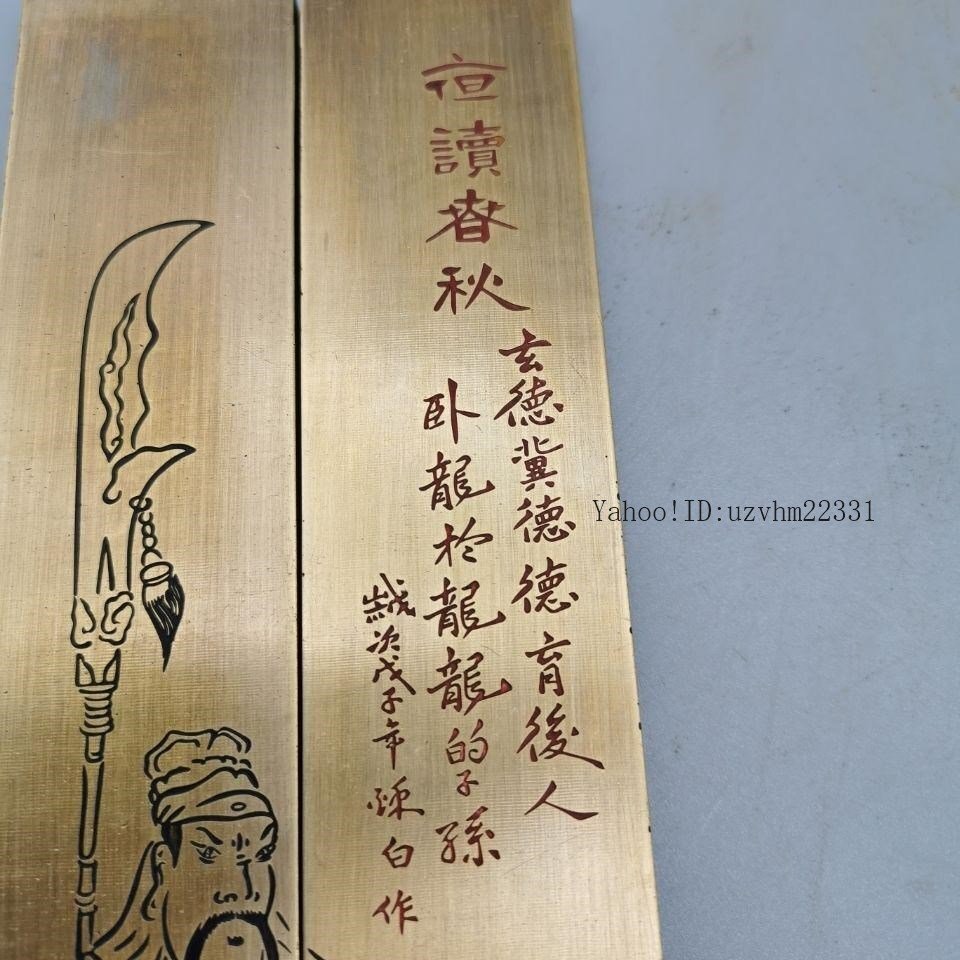 夜讀春秋
玄德冀德德育後人
卧龍於龍龍的子孫
歲次戊子年 陳白作
Yahoo!ID:uzvhm22331